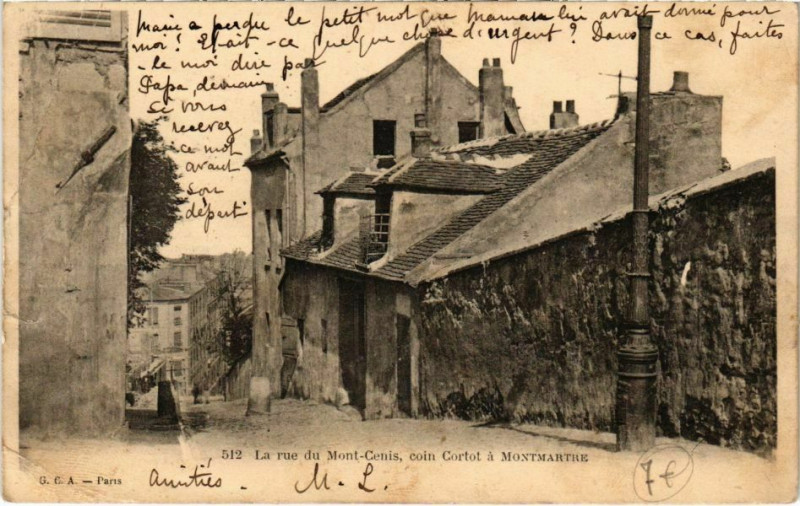 Mainé a perdu le petit mot que Maman lui avait donné pour
moi! Etait-ce quelque chose d'urgent? Dans ce cas, faites
-le moi dire par
Papa, demain
Si vous
recevez
ce mot
avant
son
départ
512 La rue du Mont-Cenis, coin Cortot à MONTMARTRE
G. C. A. — Paris
Amitiés,
M. L.
7€